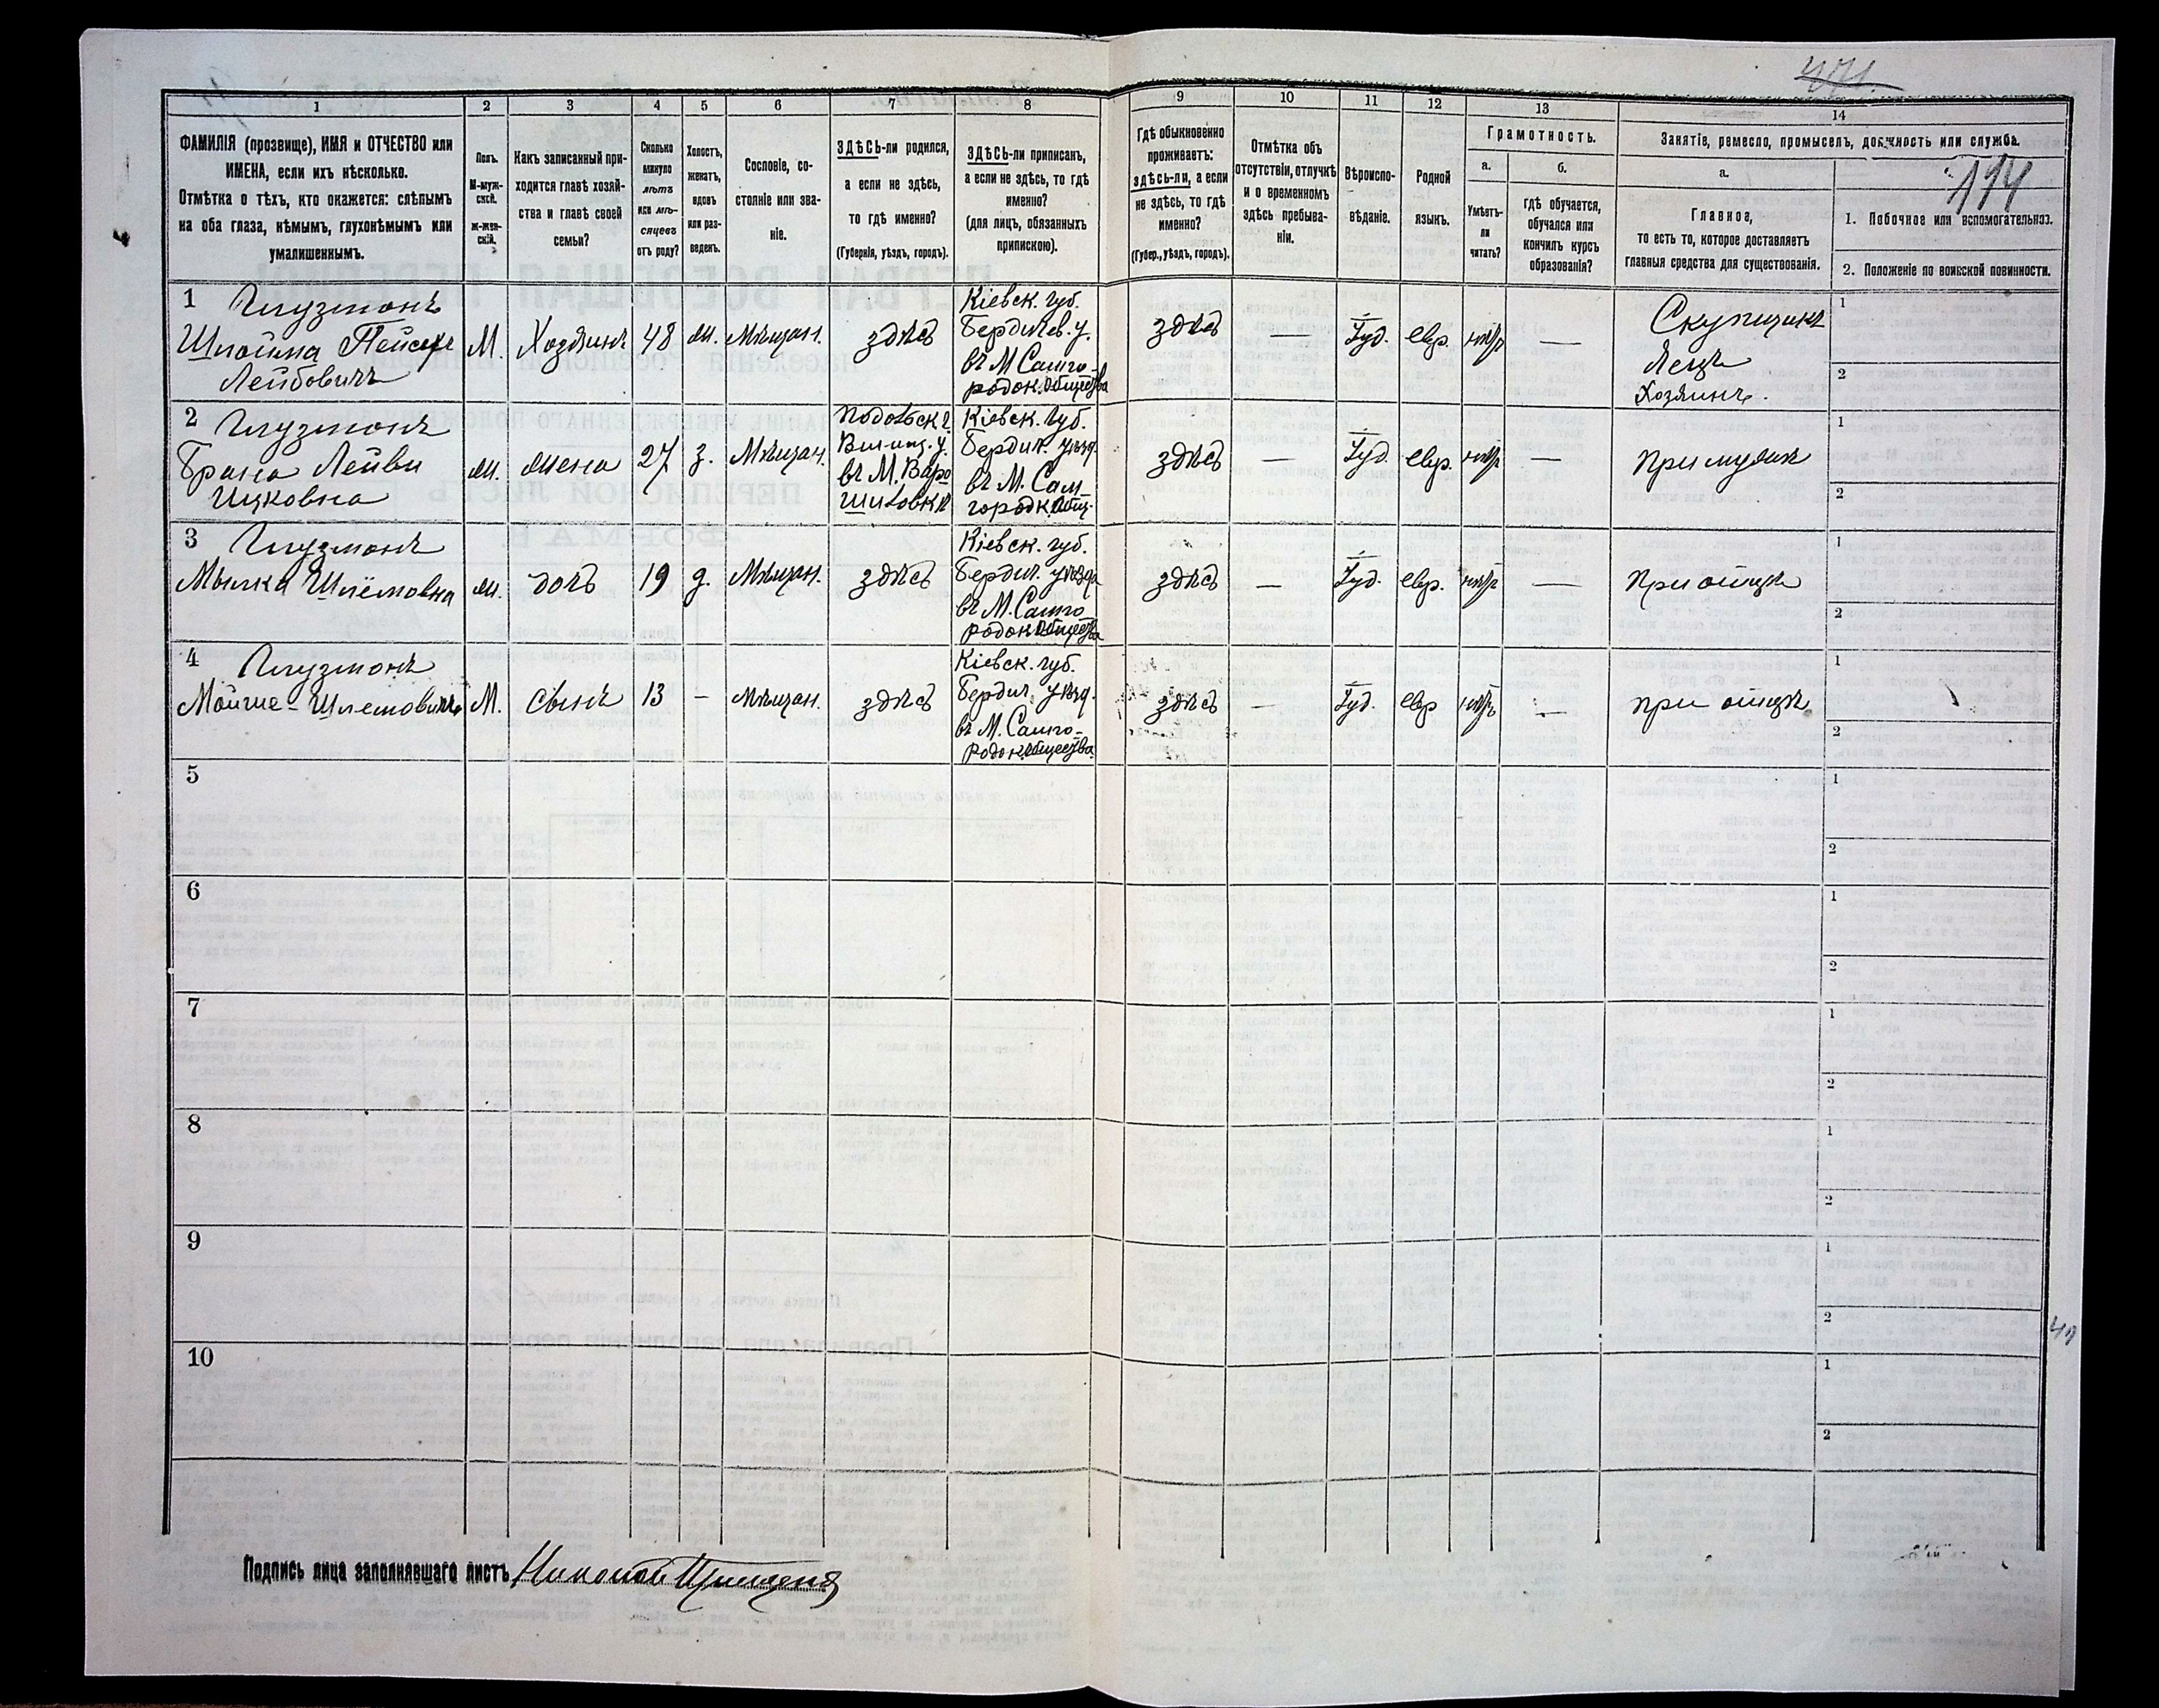 1
2
3
4
5
6
7
8
ФАМИЛІЯ (прозвище), ИМЯ и ОТЧЕСТВО или
ИМЕНА, если ихъ нѣсколько.
Отмѣтка о тѣхъ, кто окажется: слѣпымъ
на оба глаза, нѣмымъ, глухонѣмымъ или
умалишеннымъ.
Полъ.
М-муж-
ской.
Ж-жен-
скій.
Какъ записанный при-
ходится главѣ хозяй-
ства и главѣ своей
семьи?
Сколько
минуло
лѣтъ
или мѣ-
сяцевъ
отъ роду?
Холостъ,
женатъ,
вдовъ
или раз-
веденъ.
Сословіе, со-
стояніе или зва-
ніе.
ЗДѢСЬ-ли родился,
а если не здѣсь,
то гдѣ именно?
(Губернія, уѣздъ, городъ).
ЗДѢСЬ-ли приписанъ,
а если не здѣсь, то гдѣ
именно?
(для лицъ, обязанныхъ
припискою).
9
10
11
12
13
14
Гдѣ обыкновенно
проживаетъ:
здѣсь-ли, а если
не здѣсь, то гдѣ
именно?
(Губер., уѣздъ, городъ).
Отмѣтка объ
отсутствіи, отлучкѣ
и о временномъ
здѣсь пребыва-
ніи.
Вѣроиспо-
вѣданіе.
Родной
языкъ.
Грамотность.
а.
Умѣетъ-
ли
читать?
б.
гдѣ обучается,
обучался или
кончилъ курсъ
образованія?
Занятіе, ремесло, промыселъ, должность или служба.
а.
Главное,
то есть то, которое доставляетъ
главныя средства для существованія.
194
1. Побочное или вспомогательное.
2. Положеніе по воинской повинности.
1 Глузманъ
Шлойма Пейсахъ
Лейбовичъ
М.
Хозяинъ
48
ж.
Мѣщан.
здѣсь
Кіевск. губ.
Бердичев. у.
въ М Самго-
родок. Общества
здѣсь
—
Іуд.
евр.
нѣтъ
—
Скупщикъ
Яецъ
Хозяинъ.
1
2
2 Глузманъ
Брана Лейви
Ицковна
ж.
жена
27
з.
Мѣщан.
Подольск г.
въ М.
Кіевск. губ.
Бердич. уѣзд.
въ М. Сам-
городк. Общ.
здѣсь
—
Іуд.
евр.
нѣтъ
—
при мужѣ
1
2
3 Глузманъ
Мылка Шлёмовна
ж.
дочь
19
д.
Мѣщан.
здѣсь
Кіевск. губ.
Бердич. уѣзда
въ М. Самго
родок Общества
здѣсь
—
Іуд.
евр.
нѣтъ
—
при отцѣ
1
2
4 Глузманъ
Мойше-Шлемовичъ
М.
сынъ
13
-
мѣщан.
здѣсь
Кіевск. губ.
Бердич. уѣзд.
въ М. Самго-
родок. Общества.
здѣсь
—
Іуд.
евр
нѣтъ
—
при отцѣ
1
2
5
1
2
6
1
2
7
1
2
8
1
2
9
1
2
10
1
2
Подпись лица заполнявшаго листъ